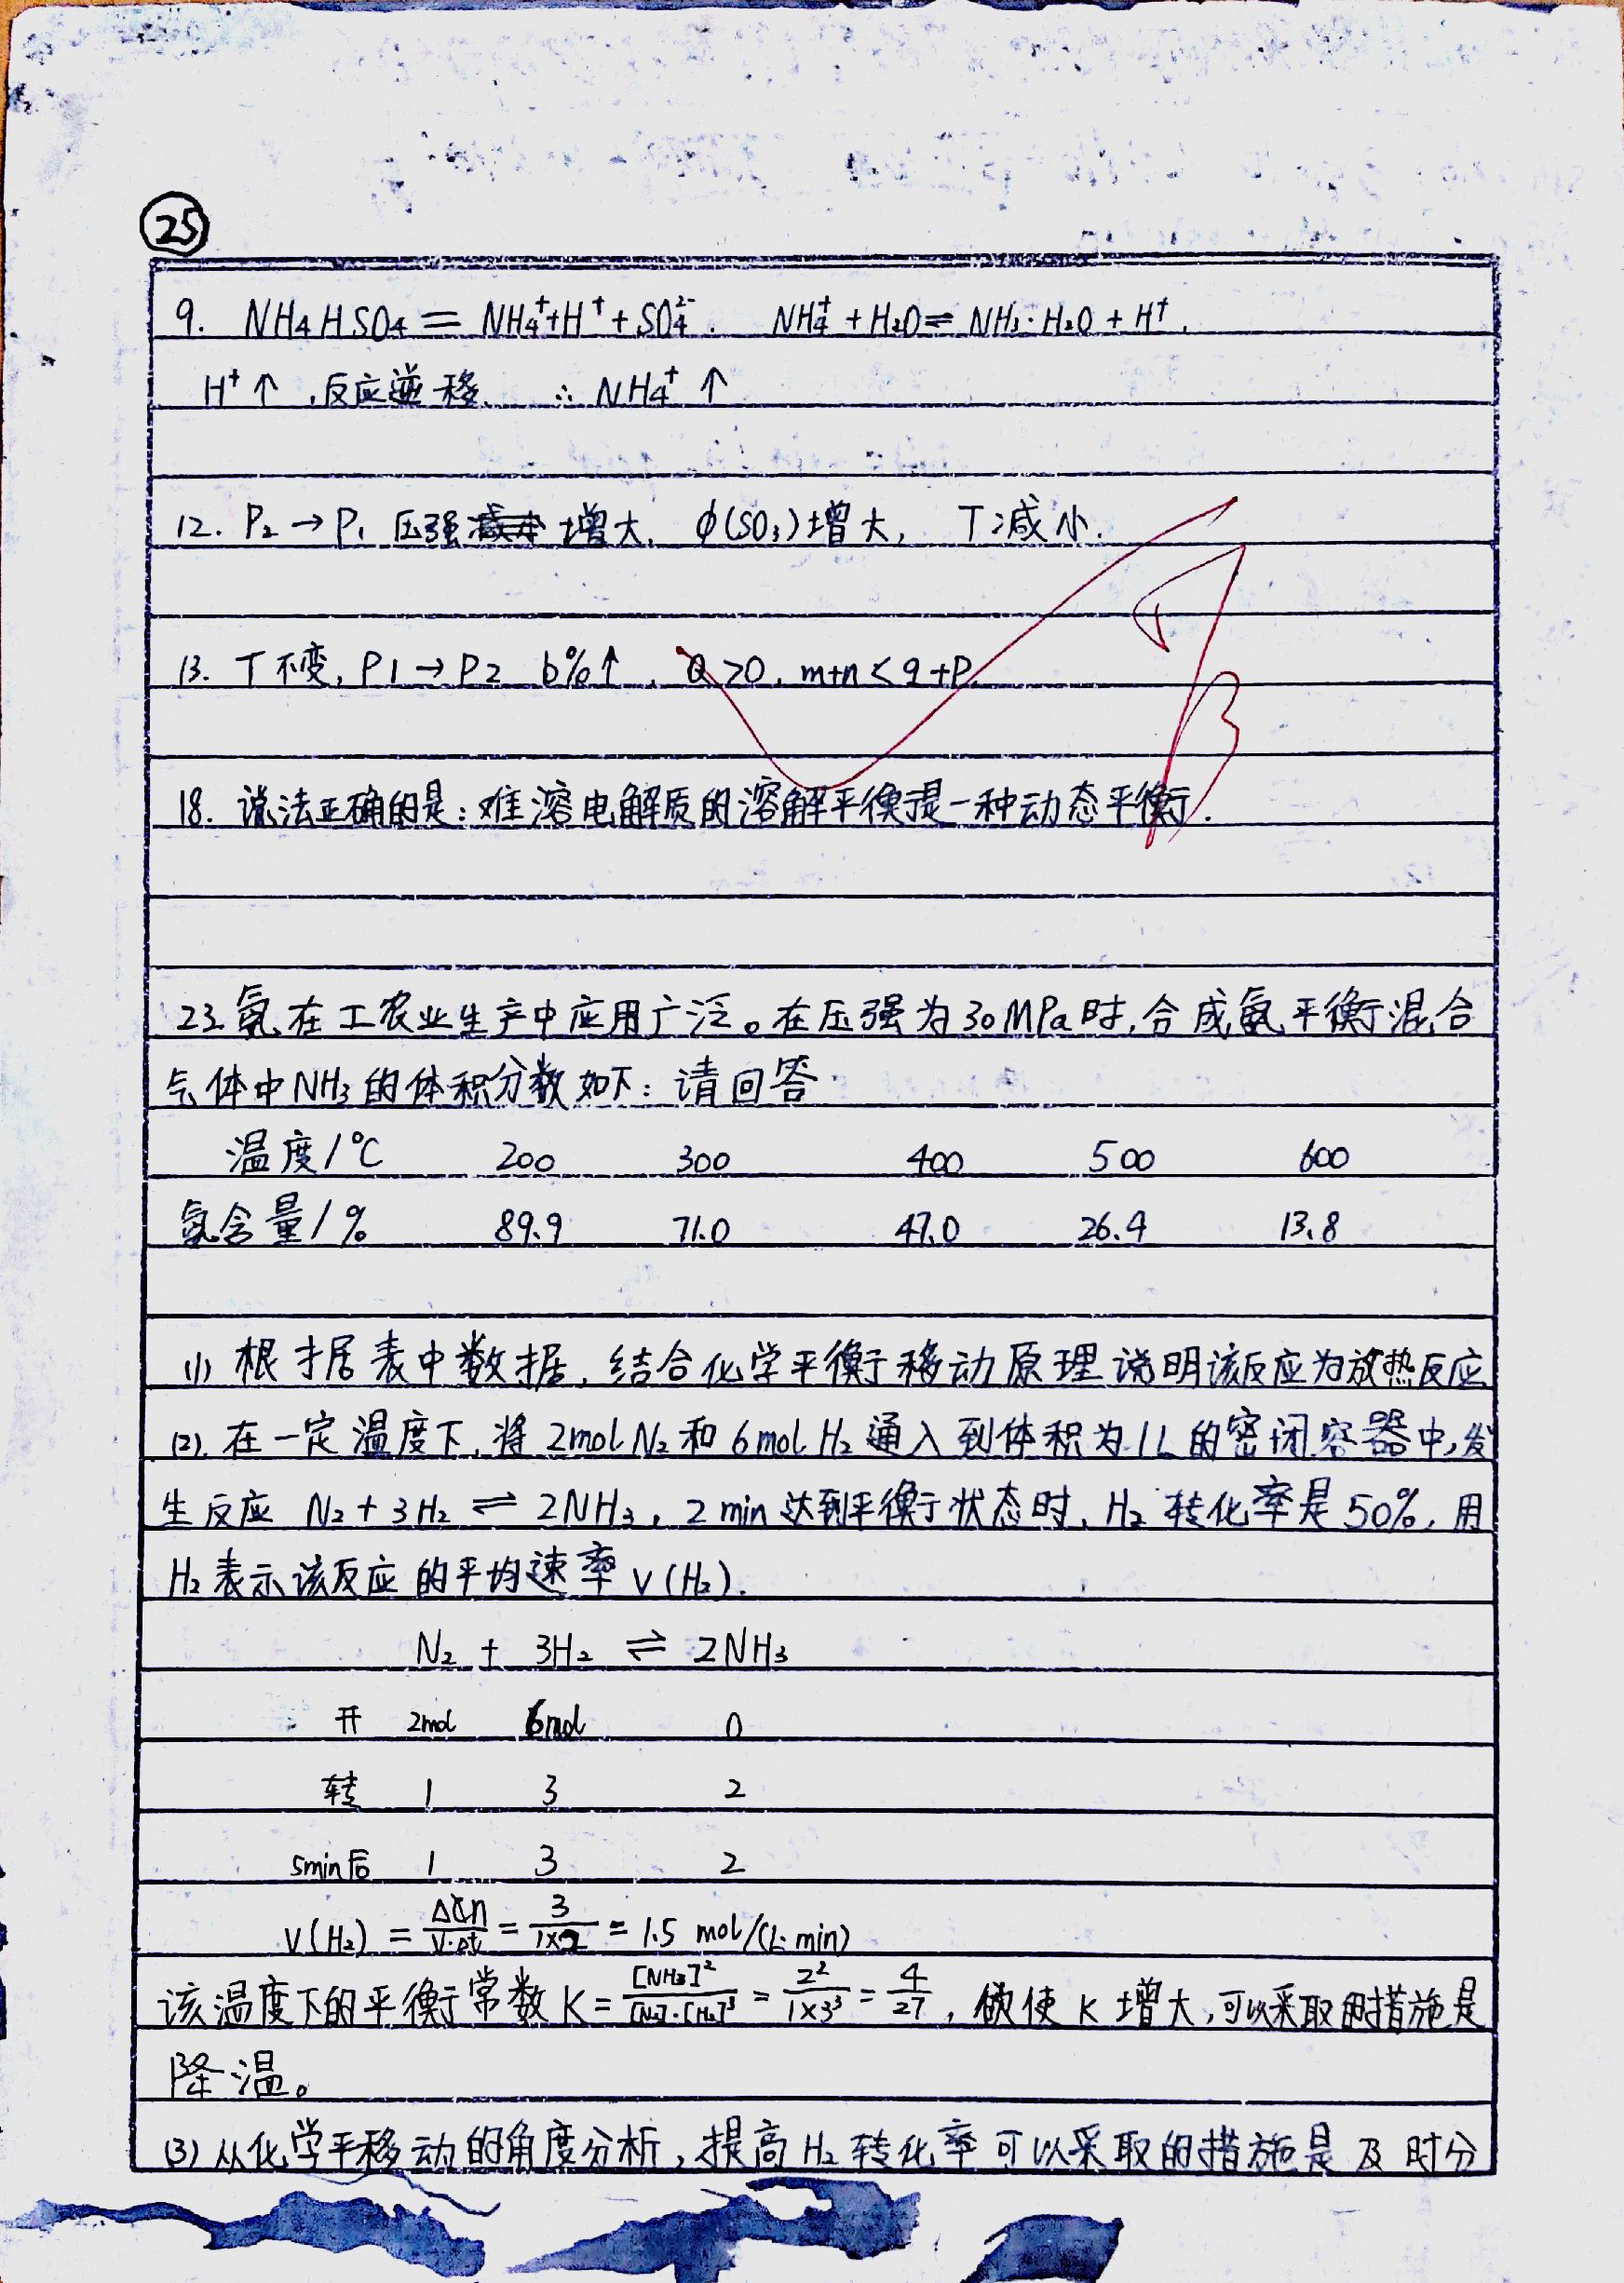 25
9. NH₄HSO₄ = NH₄⁺+H⁺+SO₄²⁻. NH₄⁺+H₂O⇌NH₃·H₂O+H⁺.
H⁺↑,反应逆移. ∴NH₄⁺↑
12. P₂→P₁ 压强增大, φ(SO₃)增大, T减小.
13. T不变, P1→P2 b%↑. Q>0. m+n<q+p.
18. 说法正确的是:难溶电解质的溶解平衡是一种动态平衡.
23.氨在工农业生产中应用广泛。在压强为30MPa时,合成氨平衡混合
气体中NH₃的体积分数如下:请回答
温度/℃ 200 300 400 500 600
氨含量/% 89.9 71.0 47.0 26.4 13.8
(1) 根据表中数据,结合化学平衡移动原理说明该反应为放热反应
(2).在一定温度下,将2molN₂和6molH₂通入到体积为1L的密闭容器中,发
生反应 N₂+3H₂⇌2NH₃, 2min达到平衡状态时,H₂转化率是50%,用
H₂表示该反应的平均速率v(H₂).
N₂ + 3H₂ ⇌ 2NH₃
开 2mol 6mol 0
转 1 3 2
5min后 1 3 2
V(H₂) = Δn/V·Δt = 3/1×2 = 1.5 mol/(L·min)
该温度下的平衡常数K=[NH₃]²/[N₂]·[H₂]³=2²/1×3³=4/27,欲使K增大,可以采取的措施是
降温。
(3)从化学平移动的角度分析,提高H₂转化率可以采取的措施是及时分